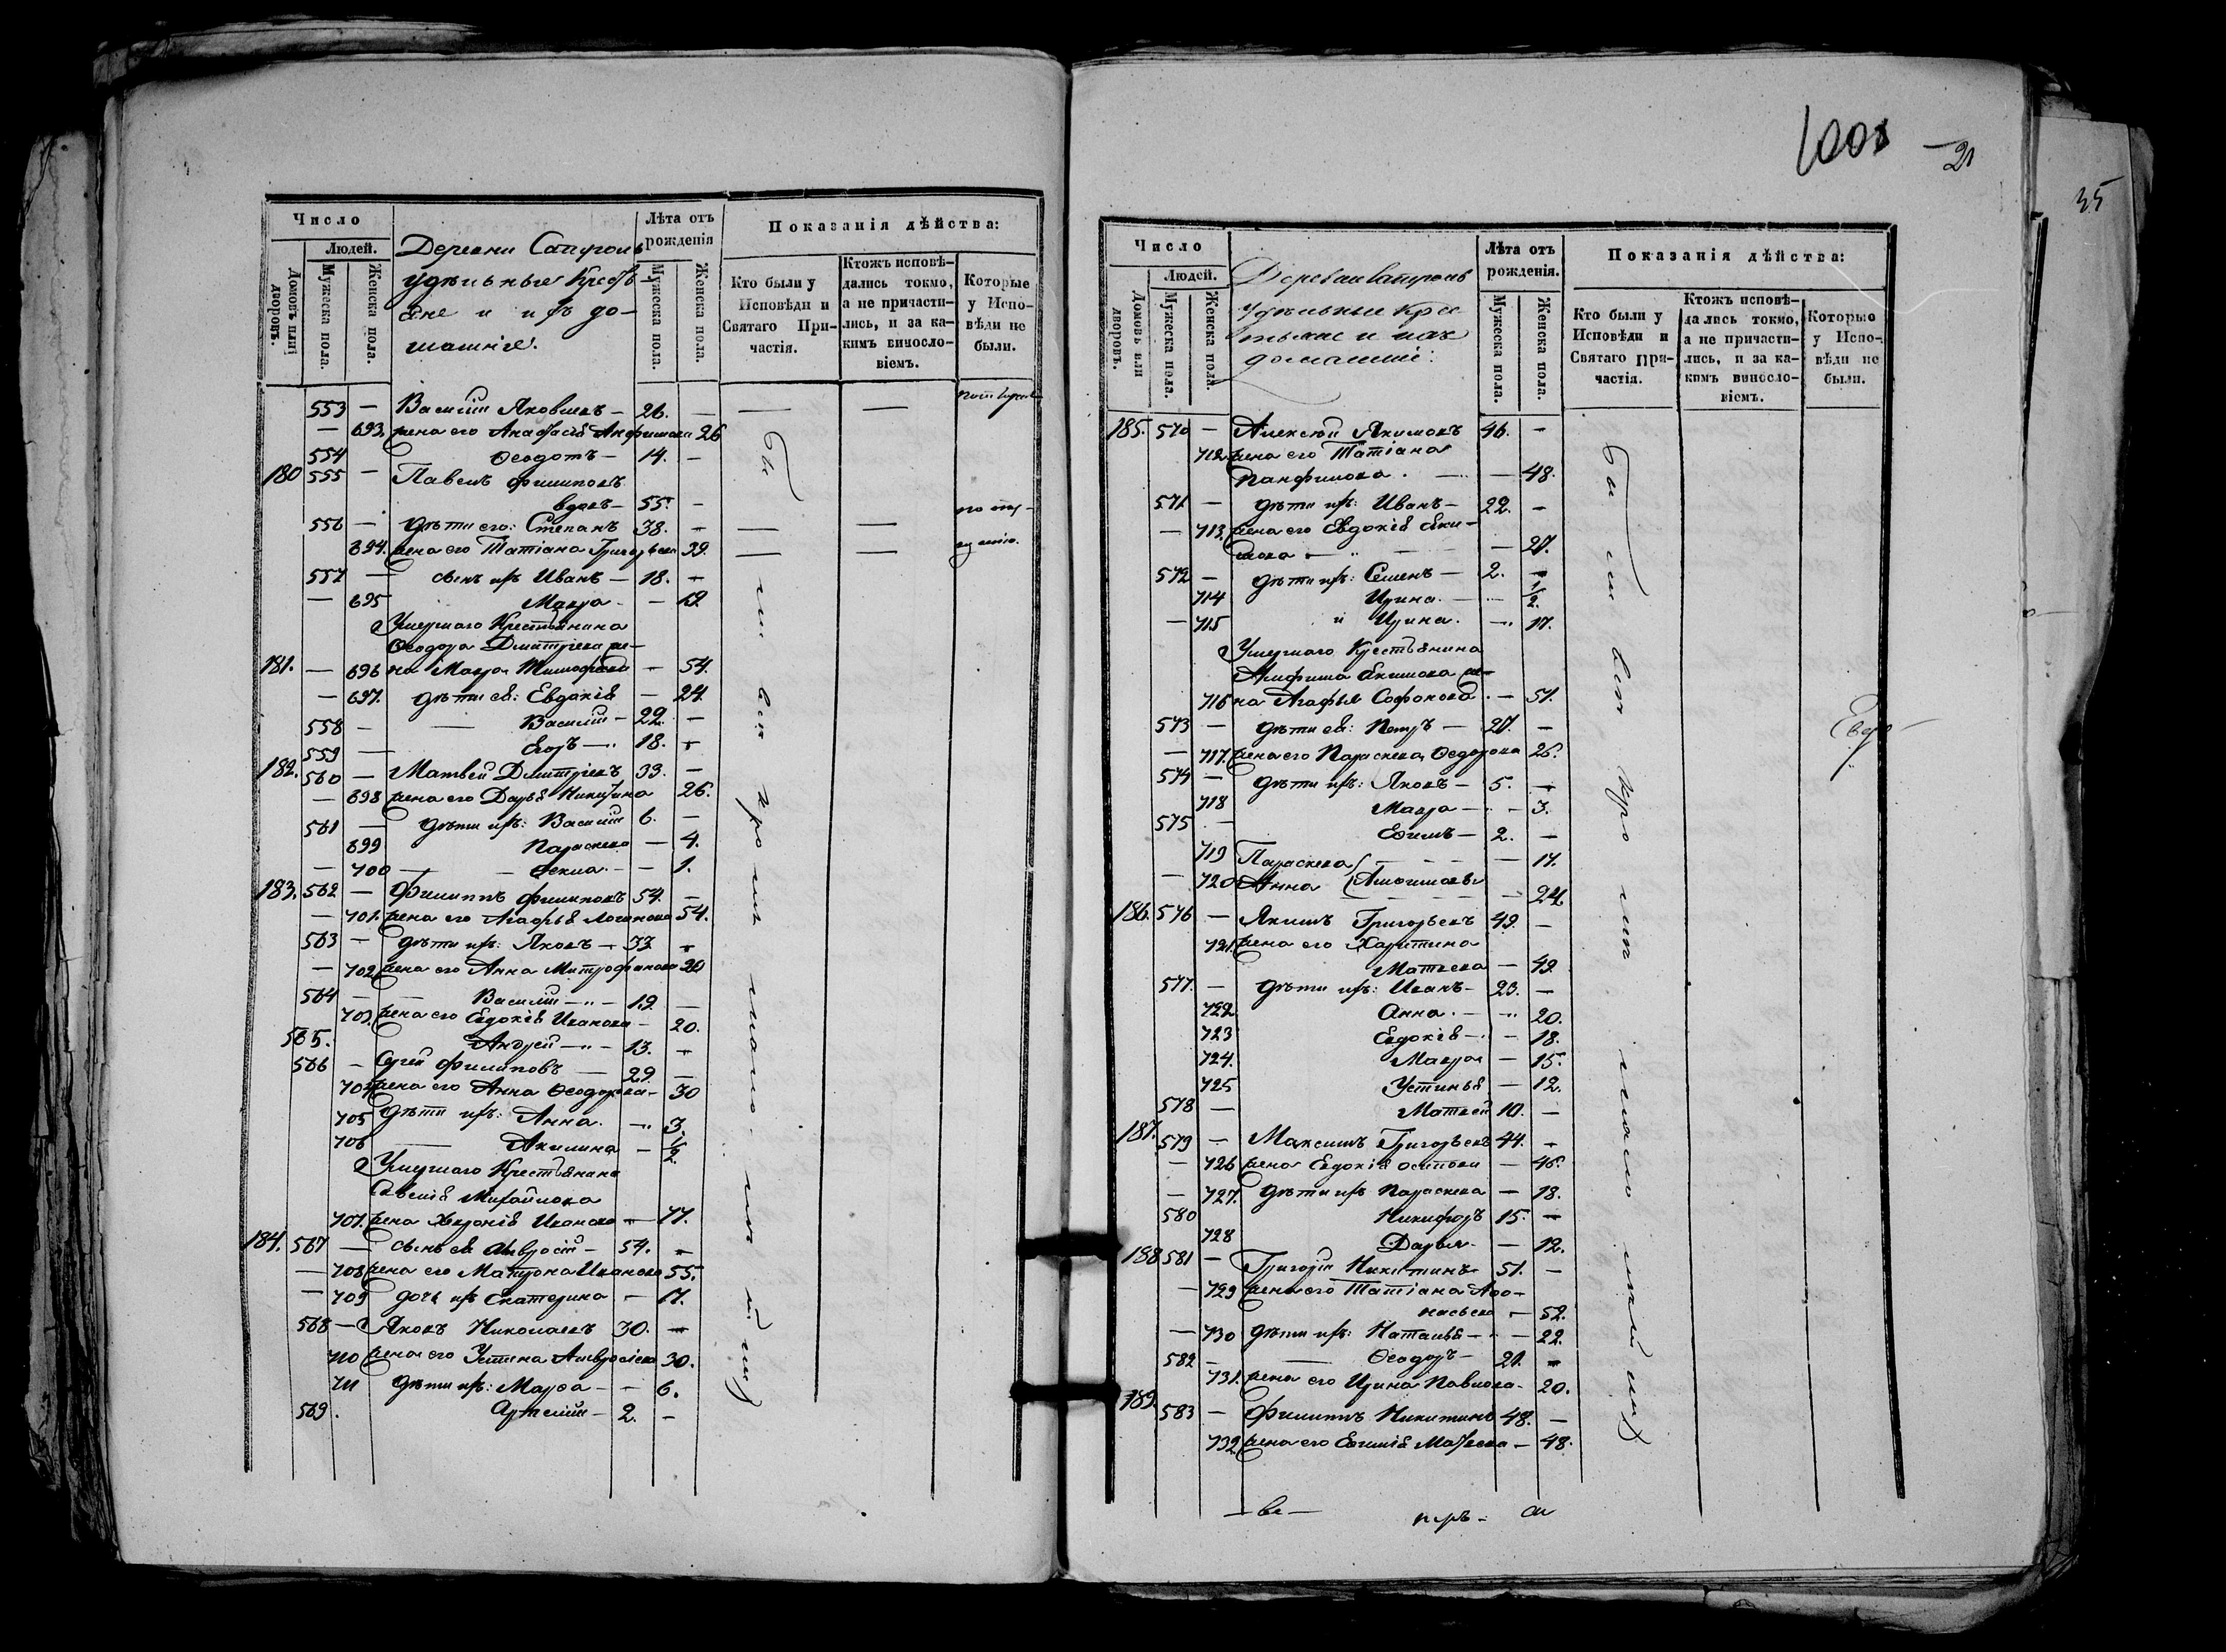 Число
Людей.
Домовъ или дворовъ.
Мужеска пола.
Женска пола.
Деревни
удѣльные Кресть-
яне и ихъ до-
машніе.
Лѣта отъ рожденія
Мужеска пола.
Женска пола.
Показанія дѣйства:
Кто были у Исповѣди и Святаго При-частія.
Ктожъ исповѣ-дались токмо, а не причасти-лись, и за ка-кимъ винословіемъ.
Которые у Испо-вѣди не были.
553 — Василій Яковлевъ — 26. —
— 693. жена его Анафиса 26
554 Ѳеодотъ — 14. —
180 555 — Павелъ Филиповъ
вдовъ — 55. —
556 — дѣти его: Степанъ 38. —
694. жена его Татіана Григорьева 39.
557 — сынъ ихъ Иванъ — 18. —
— 695 Мавра — 12
Умершаго Крестьянина
Ѳеодора Дмитріева же-
181. — 696 на Мавра Тимофеева — 54.
— 697. дѣти ея: Евдокія — 24.
558 — Василій — 22. —
559 — Егоръ — 18. —
182. 560 — Матвей Дмитріевъ 33. —
— 698 жена его Дарья Никитина 26.
561 — дѣти ихъ: Василій 6. —
699 Параскева — 4.
— 700 — Ѳекла — 1.
183. 562 — Филиппъ Филиповъ 54. —
— 701. жена его Агафья Логинова 54.
563 — дѣти ихъ: Яковъ — 33 —
— 702 жена его Анна Митрофанова 20
564 — Василій — 19. —
703. жена его Евдокія Иванова — 20.
565. Андрей — 13. —
566 — Сергей Филиповъ — 29. —
704 жена его Анна Ѳеодорова — 30
705 дѣти ихъ: Анна — 3.
706 — Акилина — 1/2
Умершаго Крестьянина
Савелія Михайлова
707. жена Хевронія Иванова — 77.
184. 567 — сынъ ея Амвросій — 54. —
— 708 жена его Матрона Иванова 55.
— 709 дочь ихъ Екатерина — 17.
568 — Яковъ Николаевъ 30. —
710 жена его Устина Амвросіева 30.
711 дѣти ихъ: Марѳа — 6.
569. Артемій — 2. —
1001 — 21
35
Число
Людей.
Домовъ или дворовъ.
Мужеска пола.
Женска пола.
Деревни
Удѣльные Кре-
стьяне и ихъ
домашніе:
Лѣта отъ рожденія.
Мужеска пола.
Женска пола.
Показанія дѣйства:
Кто были у Исповѣди и Святаго При-частія.
Ктожъ исповѣ-дались токмо, а не причасти-лись, и за ка-кимъ винословіемъ.
Которые у Испо-вѣди не были.
185. 570 — Алексей Якимовъ 46. —
712 жена его Татіана
Панфилова — 48.
571 — дѣти ихъ: Иванъ — 22. —
— 713. жена его Евдокія Яки-
мова — 21.
572 — дѣти ихъ: Семенъ — 2. —
714 Ирина — 1/2.
— 715 и Ирина — 17.
Умершаго Крестьянина
Анфима Якимова же-
716 на Агафья Софонова — 51.
573 — дѣти ея: Петръ — 27. —
— 717. жена его Параскева Ѳедорова 26.
574 — дѣти ихъ: Яковъ — 5. —
718 Мавра — 3.
575 — Ефимъ — 2. —
719 Параскева — 17.
— 720 Анна — 24
186. 576 — Якимъ Григорьевъ 49. —
721. жена его Харитина
Матвеева — 49.
577. — дѣти ихъ: Иванъ — 23. —
722 Анна — 20.
723 Евдокія — 18.
724. Мавра — 15.
725 Устинья — 12.
578 — Матвей 10. —
187. 579 — Максимъ Григорьевъ 44. —
— 726 жена Евдокія Осипова — 46.
— 727. дѣти ихъ Параскева — 18.
580 Никифоръ 15. —
728 Дарья — 12.
188 581 — Григорій Никитинъ 51. —
— 729 жена его Татіана Аѳо-
насьева — 52.
— 730 дѣти ихъ: Наталья — 22.
582 — Ѳеодоръ — 21. —
731. жена его Ирина Павлова — 20.
189. 583 — Филиппъ Никитинъ 48. —
732 жена его Евгенія Матвеева — 48.